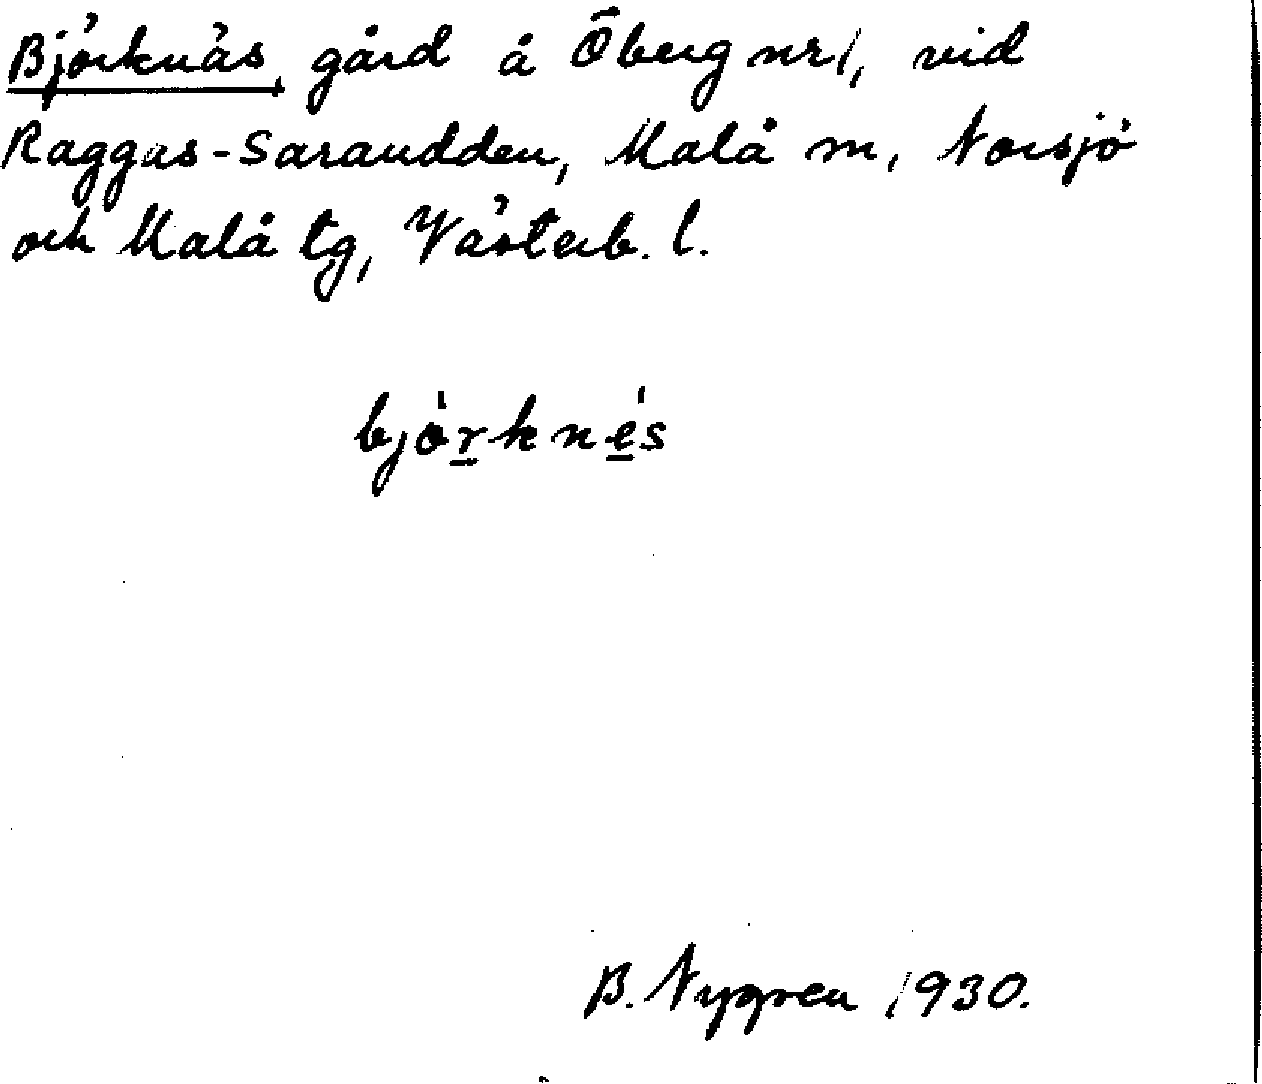 Björknäs, gård å Öberg nr 1, vid
Raggas-Saraudden, Malå sn, Norsjö
och Malå tg, Västerb. l.
bjö̀rknés
B. Nygren 1930.